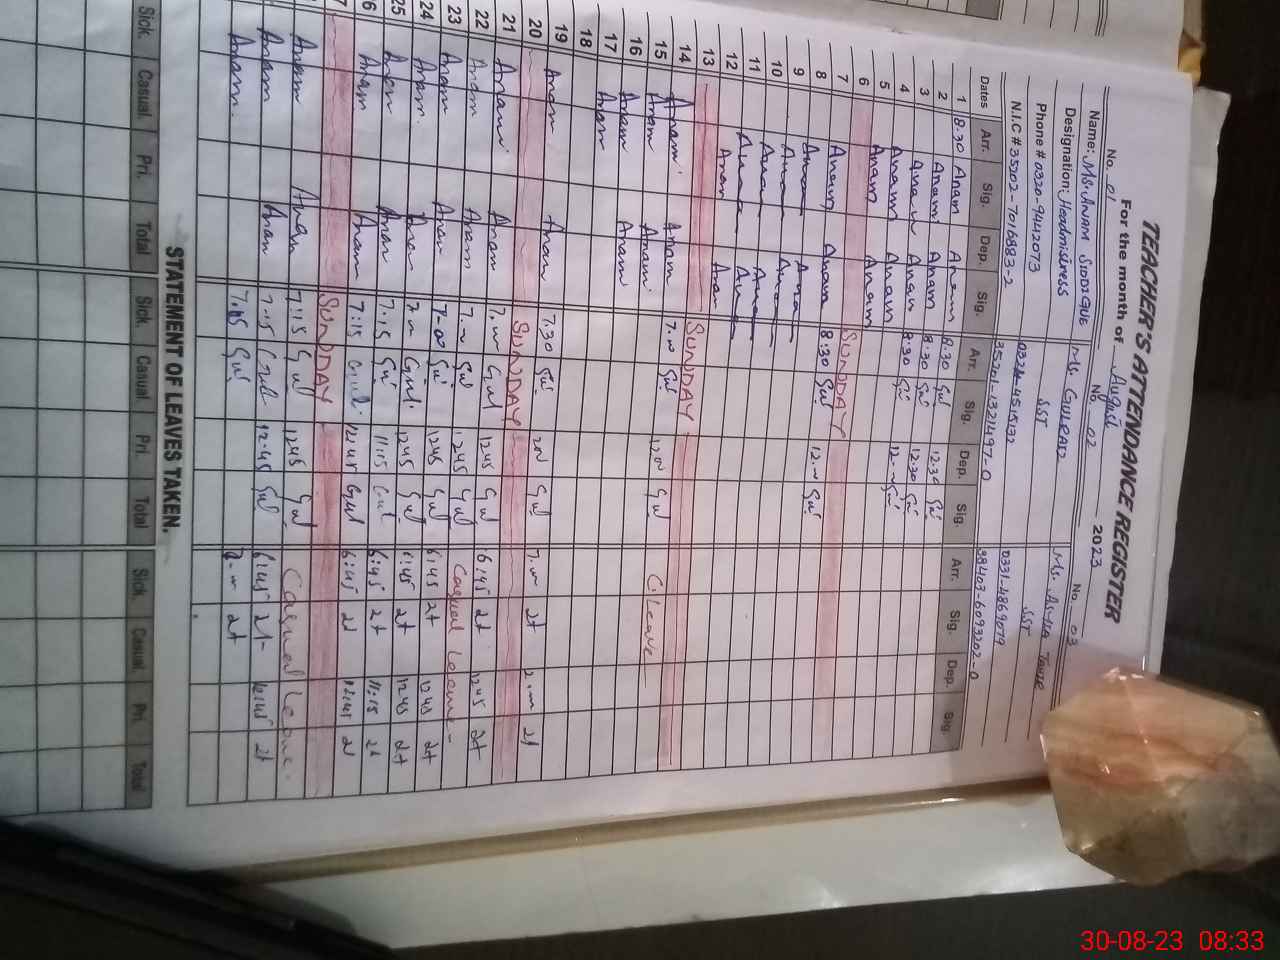 TEACHER'S ATTENDANCE REGISTER
For the month of August 2023
No. 01 No 02 No. 03
Name: Ms. ANAM SIDDIQUE Ms. GULRAIZ Ms. Asma
Designation: Headmistress SST SST
Phone # 0320-9442073 0331-4869079
N.I.C # 35202-7016883-2 35201-1321497-0 38403-6093202-0
Dates Arr. Sig. Dep. Sig. Arr. Sig. Dep. Sig. Arr. Sig. Dep. Sig.
1 8.30 Anam Anam
2 Anam Anam 8:30 Gul 12:30 Gul
3 Anam Anam 8:30 Gul 12:30 Gul
4 Anam Anam 8:30 Gul 12. Gul
5 Anam Anam
6 SUNDAY
7 Anam Anam 8:30 Gul 12. Gul
8 Anam Anam
9 Anam Anam
10 Anam Anam
11 Anam Anam
12 Anam Anam
13 SUNDAY
14 Anam Anam 7. Gul 1200 Gul C.Leave
15 Anam Anam
16 Anam Anam
17 Anam
18
19 Anam Anam 7.30 Gul 200 Gul 7. 2t 2. 2t
20 SUNDAY
21 Anam Anam 7. Gul 1245 Gul 6:45 2t 1245 2t
22 Anam Anam 7. Gul 1245 Gul Casual Leave
23 Anam Anam 7-00 Gul 1245 Gul 6:45 2t 1245 2t
24 Anam Anam 7 Gul 1245 Gul 6:45 2t 1245 2t
25 Anam Anam 7.15 Gul 11:15 Gul 6:45 2t 11:15 2t
26 Anam Anam 7:15 Gul 12:45 Gul 6:45 2t 12:45 2t
7 SUNDAY
Anam Anam 7:15 Gul 1245 Gul Casual Leave
Anam Anam 7.15 Gul 12:45 Gul 6:45 2t 12:45 2t
Anam 7.15 Gul 7. 2t
STATEMENT OF LEAVES TAKEN.
Sick. Casual. Pri. Total Sick. Casual. Pri. Total Sick. Casual. Pri. Total
30-08-23 08:33